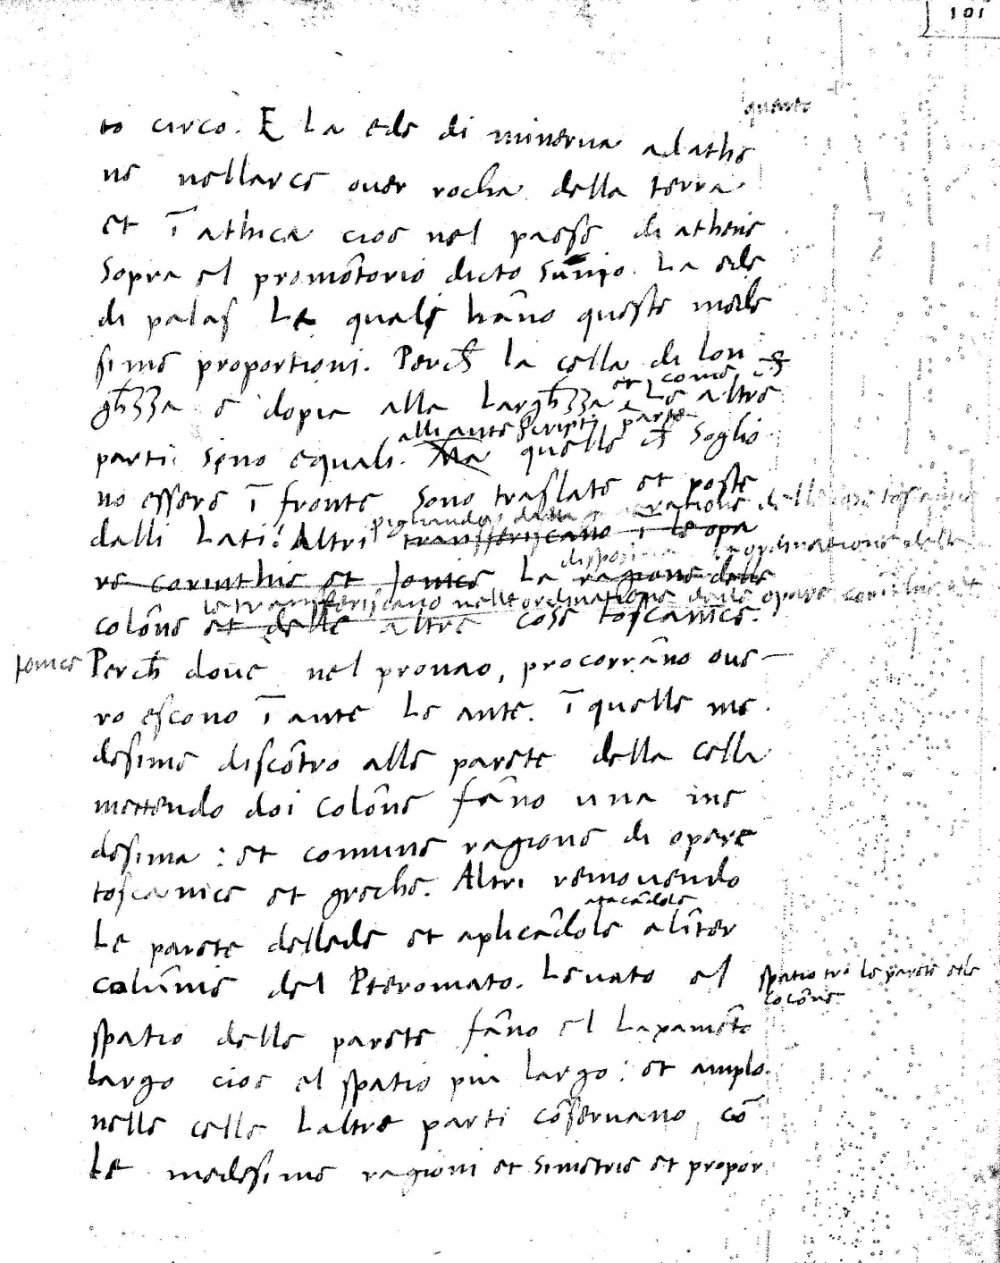 101
quarto
to circo. E La ede di minerva adathe
ne nellarce over rocha della terra
et ī athica cioe nel paese di athene
Sopra el promōtorio dicto Suniō. La ede
di palas Le quale hāno queste mede
sime proportioni. Perch̄ la cella di lon
gh̄zza e dopia alla Largh̄zza et come ch̄
Le altre
parti Sōno equali. alli ante Scripti parte
Ma quelle ch̄ Soglio
no essere ī fronte Sono traslate et poste
dalli Lati: Altri pigliando dalla
transferiscano ī le opa
re corinthie et Jonice La ragione delle
disposi ordinatione delle
le transferiscano nelle ordinatione delle opere
colōne et delle altre cose toscanice.
Jonice Perch̄ dove nel pronao, procorrāno ove
ro escono ī ante Le ante. ī quelle me
desime discōtro alle parete della cella
mettendo doi colōne fāno una me
desima: et comune ragione di opere
toscanice et greche. Altri removendo
atacādole
Le parete dellede et aplicādole alīter
columnie del Pteromato. Levato el
spatio tra le parete et le
colōne
spatio delle parete fāno el Laxamēto
largo cioe el spatio piu largo: et amplo.
nelle celle Laltre parti cōservano cō
Le medesime ragioni et Simetrie et propor